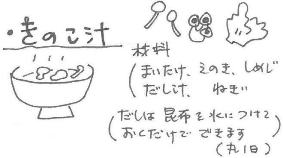 ・きのこ汁
材料
(まいたけ、えのき、しめじ
だしじる、ねぎ)
(だしは昆布を水につけて
おくだけでできます)
(丸1日)